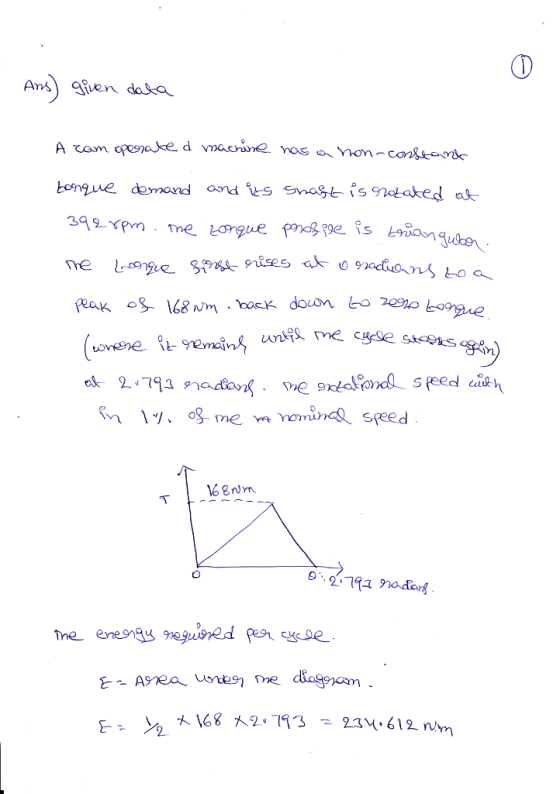 ①
Ans) given data
A cam operated machine has a non-constant
torque demand and its shaft is rotated at
392 rpm. The torque profile is triangular.
The torque first rises at 0 radians to a
peak of 168 Nm. back down to zero torque.
(where it remains until the cycle starts again)
at 2.793 radians. The rotational speed with
in 1%. of the nominal speed.
168Nm
T
0
θ: 2.793 radians.
The energy required per cycle.
E = Area under the diagram.
E = 1/2 × 168 × 2.793 = 234.612 N/m